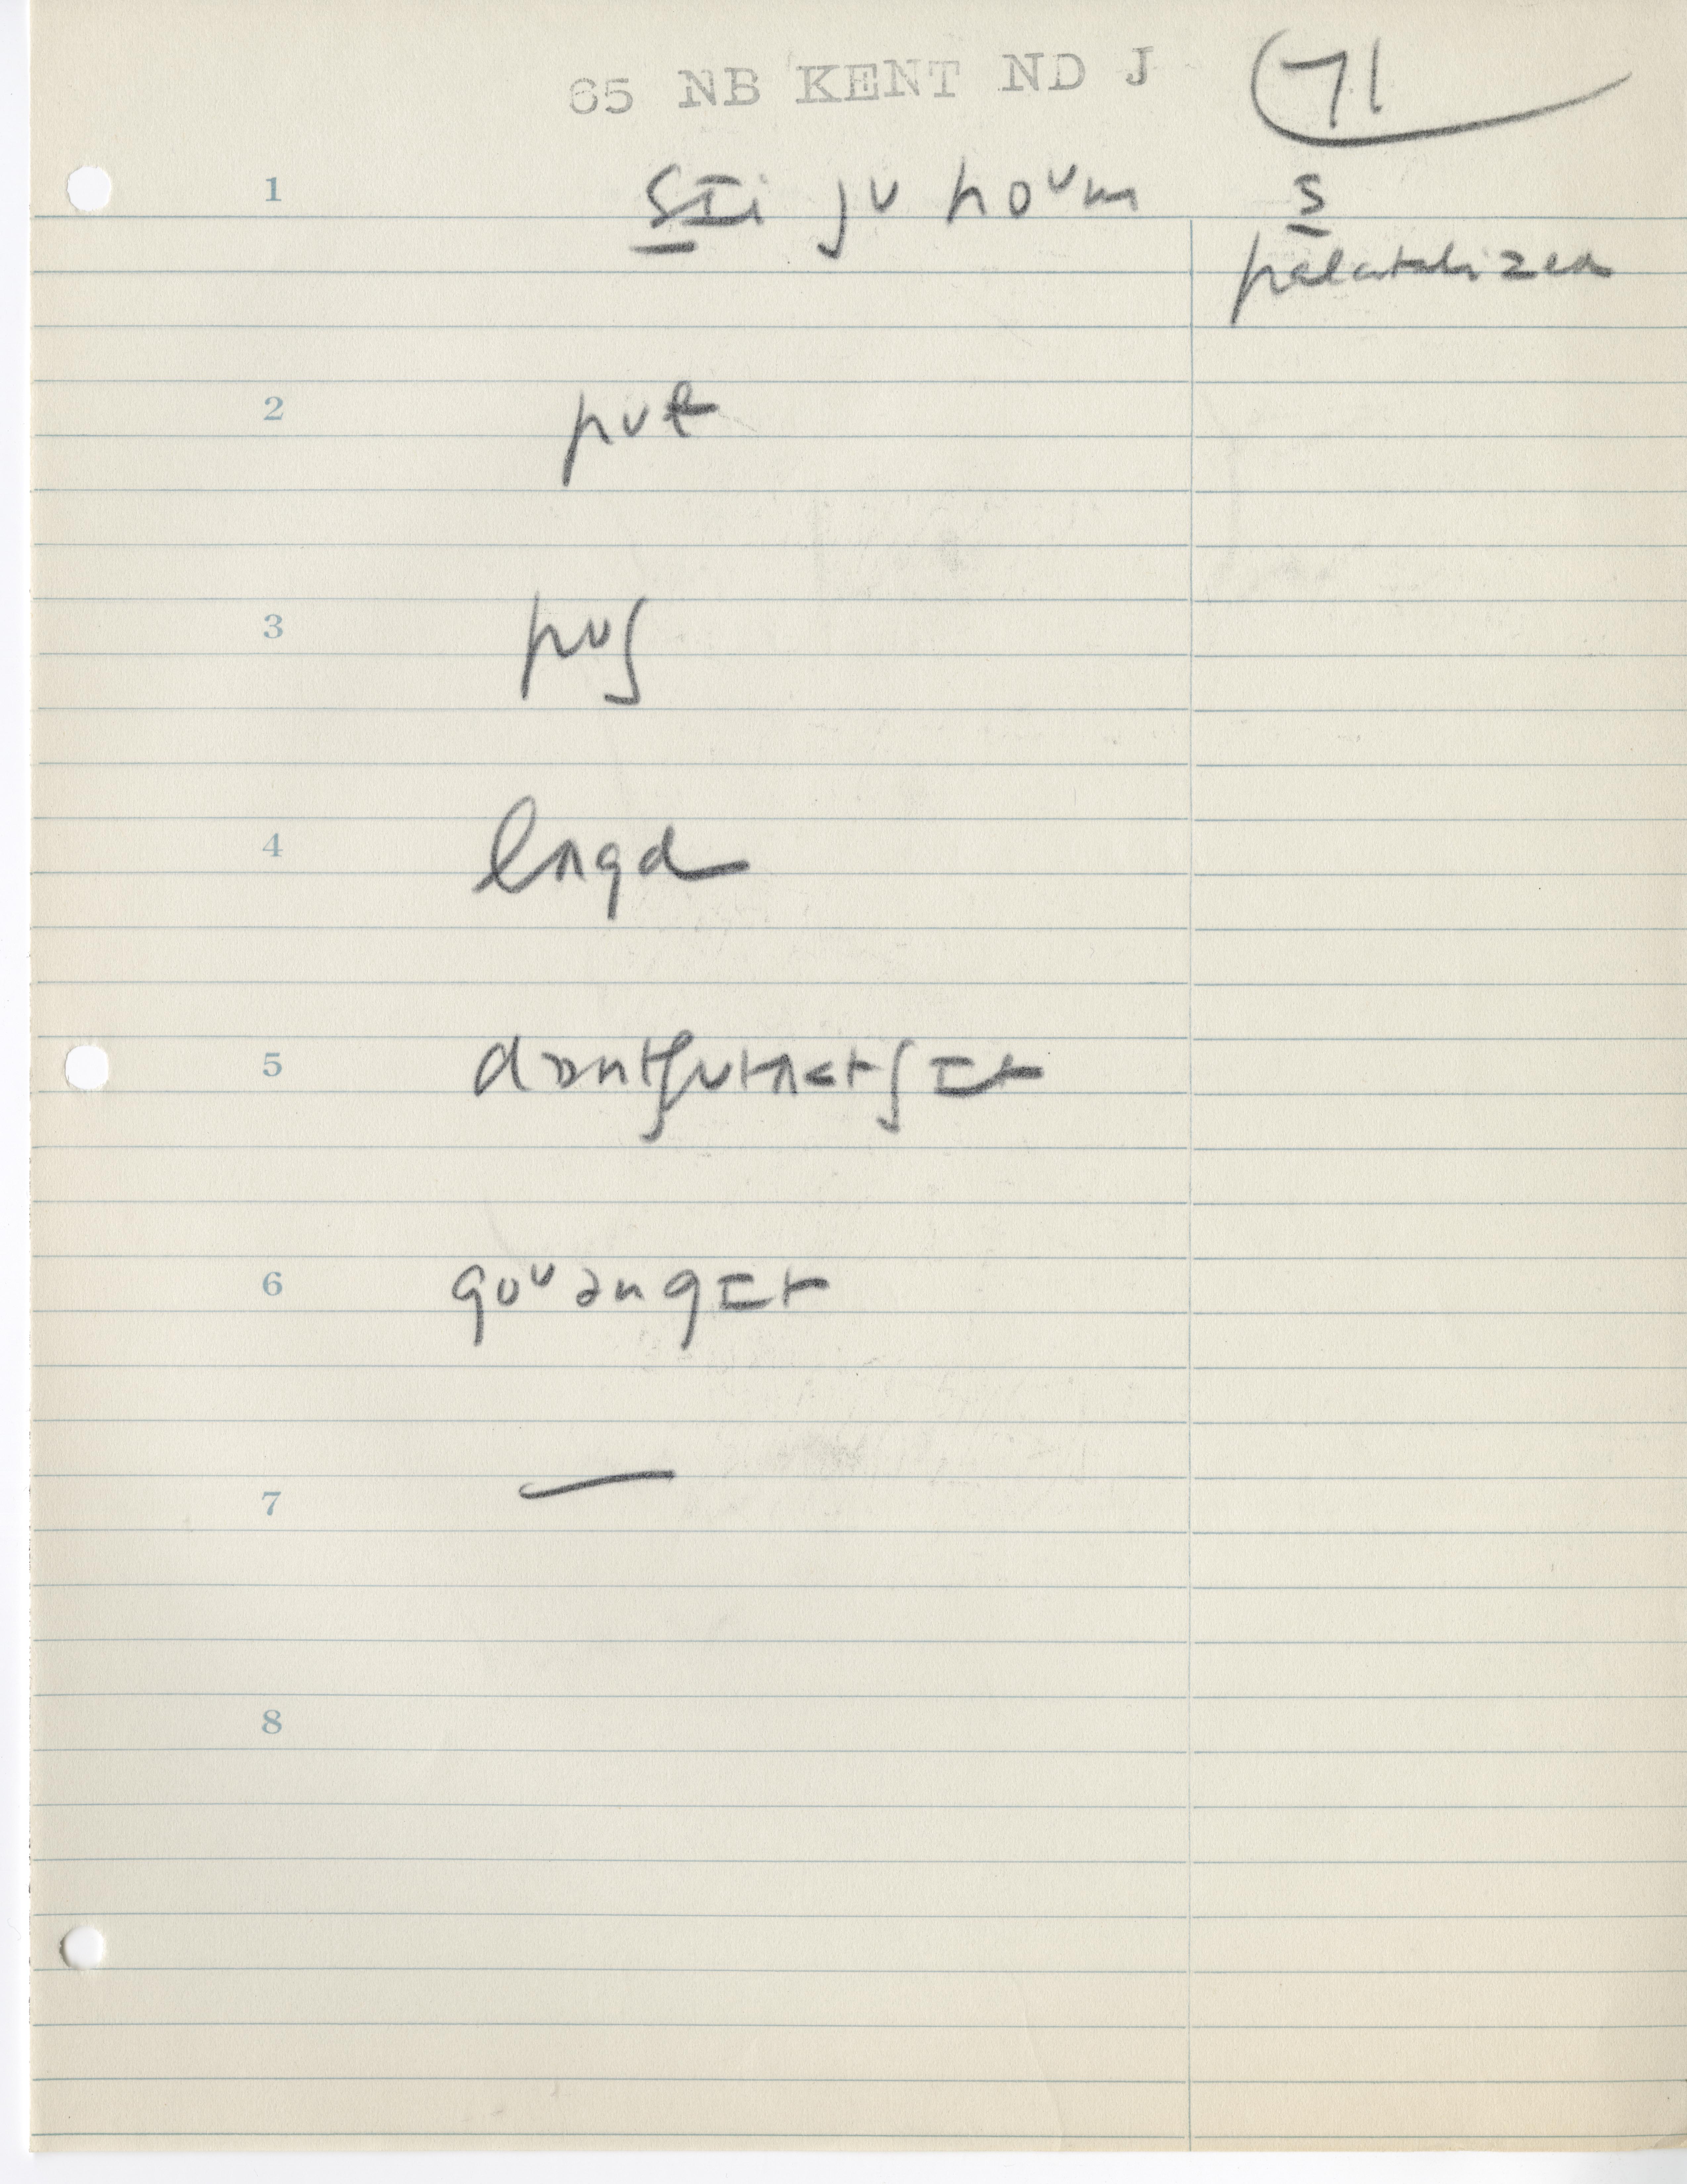 65 NB KENT ND J 71
1 s̲ɪi jʊ hoᴜm s̲
palatalized
2 pʊt
3 pʊʃ
4 lʌgd
5 doontʃutʌtʃ ɪt
6 goᴜ ən gɪt
7 —
8